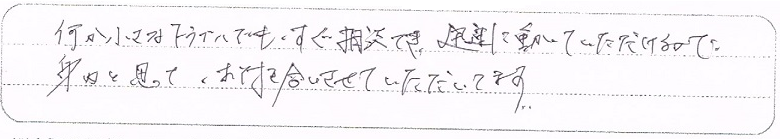 何か小さなトラブルでも、すぐ相談でき、迅速に動いていただけるので、
身内と思って、お付き合いさせていただいてます。